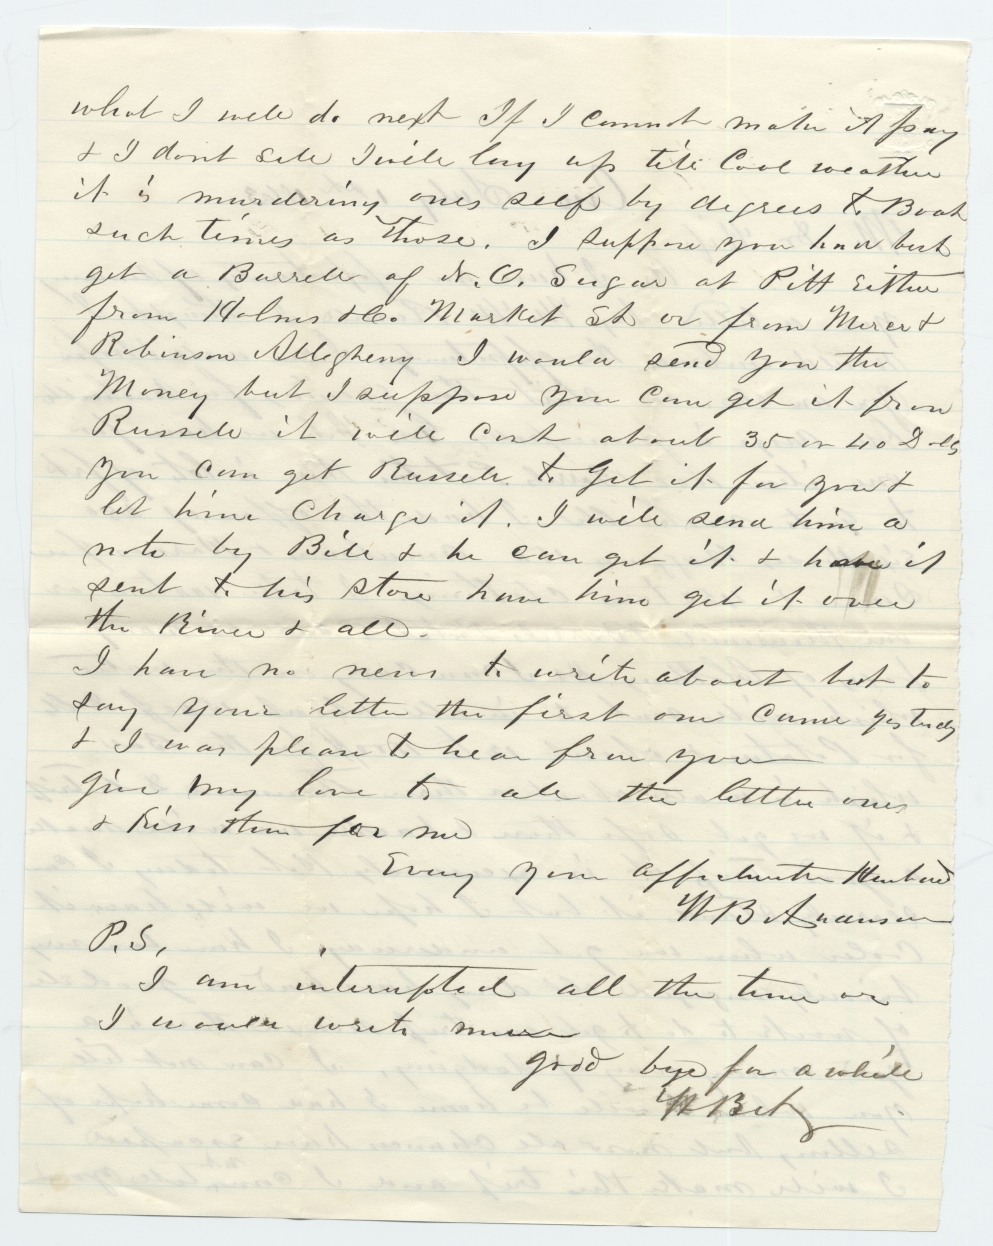 what I will do next If I cannot make it pay
& I dont sell I will lay up till Cool weather
it is murdering ones self by degrees to Boat
such times as those. I suppose you had best
get a Barrell of N.O. Sugar at Pitt Either
from Holms & Co. Market St or from Mercer &
Robinson Allegheny I would send you the
Money but I suppose you can get it from
Russell it will cost about 35 or 40 Dolls
you can get Russell to Get it for you &
let him Charge it. I will send him a
note by Bill & he can get it & have it
sent to his store have him get it over
the River & all.
I have no news to write about but to
say your letter the first one came yesterdy
& I was pleas to hear from you
give my love to all the little ones
& Kiss them for me
Every your affectinate Husband
W B Anderson
P.S.
I am interupted all the time or
I would write more
good bye for a while